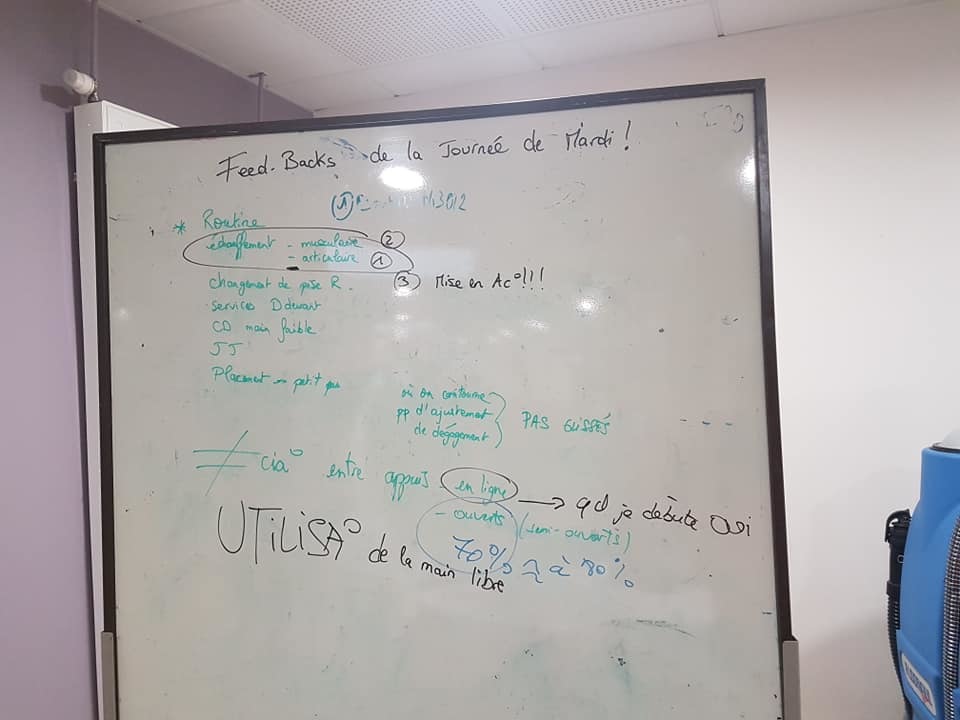 Feed-Backs de la Journée de Mardi !
* Routine
échauffement - musculaire ②
- articulaire ①
changement de prise R. ③ Mise en Ac°!!!
services D devant
CD main faible
JJ
Placement petit
où on contourne
pp d'ajustement
de dégagement
PAS GLISSÉS
≠ cia° entre appuis en ligne → qd je débute OUI
- ouverts (semi-ouverts)
70% à 80%
UTILISA° de la main libre